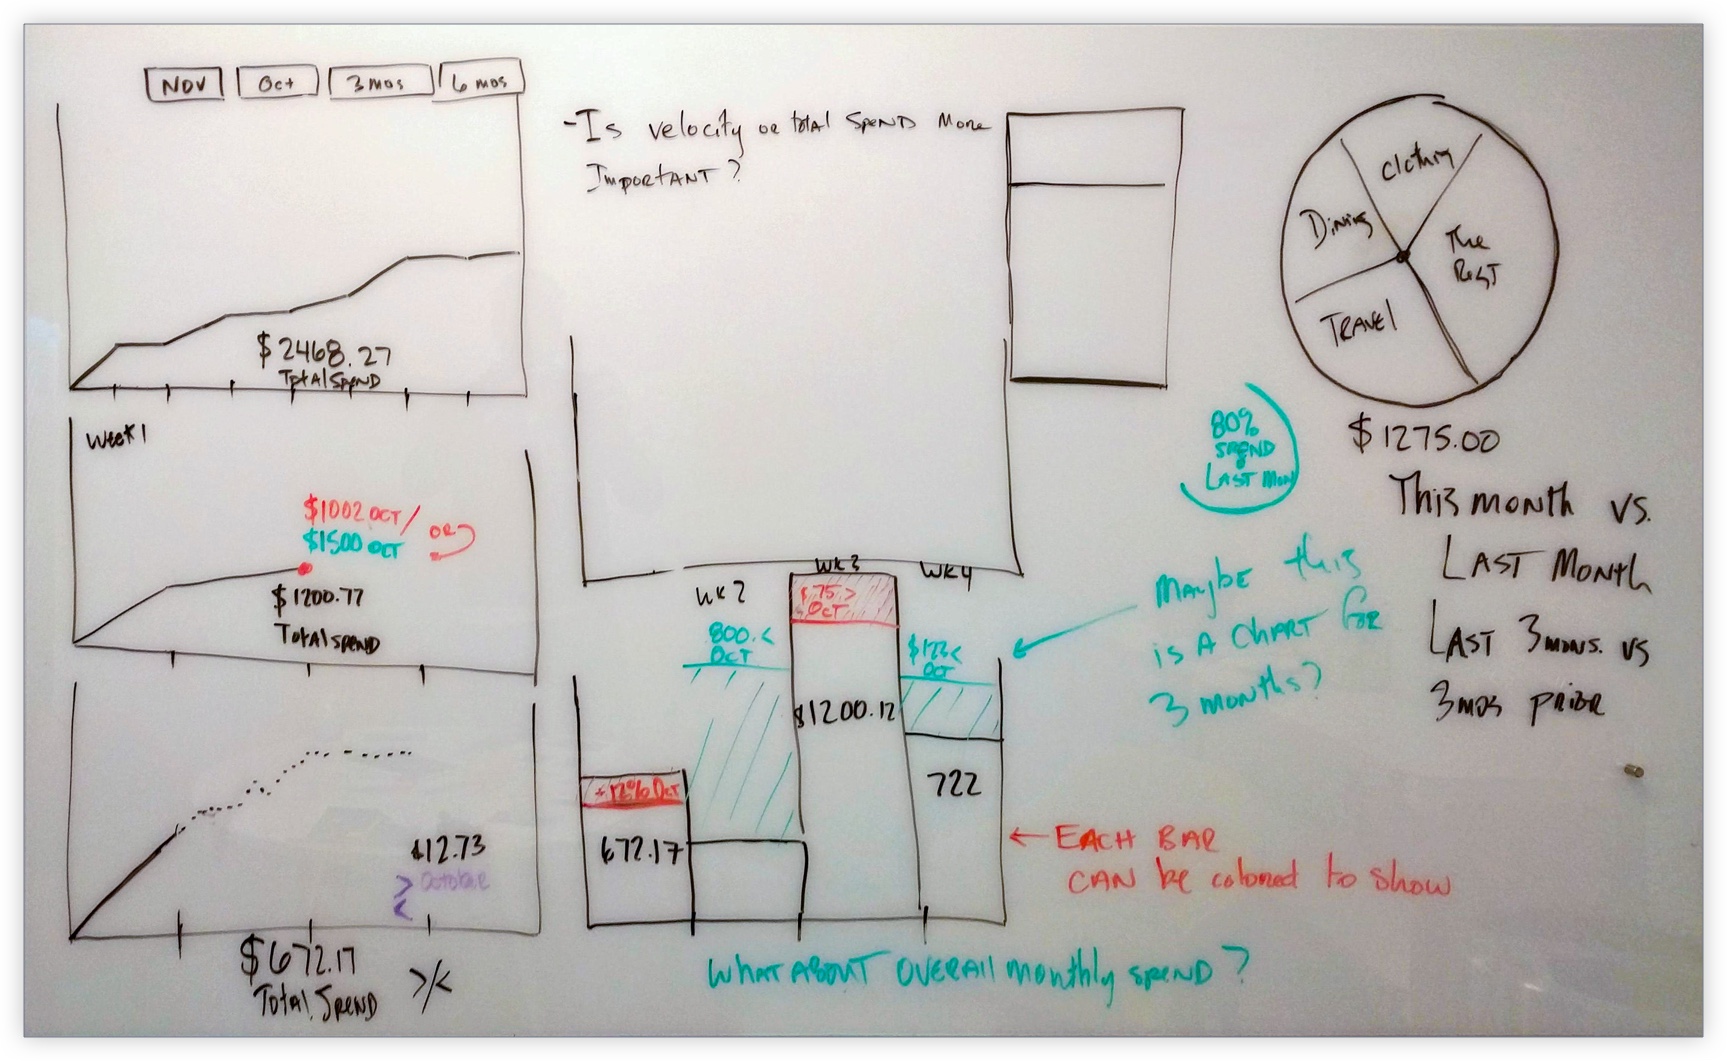 NOV
Oct
3 mos
6 mos
$2468.27
Total SPEND
- Is velocity or total SPEND More
Important?
Clothing
Dining
The
Rest
TRAVEL
$1275.00
Week 1
$1002 OCT/
$1500 OCT
OR
$1200.77
Total spend
80%
SPEND
LAST MON
This month vs.
LAST MONTH
LAST 3 mons. vs
3 mos prior
Maybe this
is A CHART for
3 months?
WK 2
WK 3
WK 4
$75.>
OCT
800.<
OCT
$123<
OCT
$1200.12
+12% Oct
672.17
722
← EACH BAR
CAN be colored to show
$12.73
> October
<
$672.17
Total Spend
>/<
WHAT ABOUT OVERALL monthly spend?